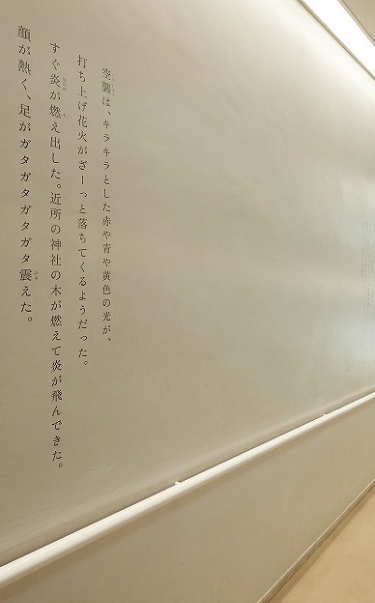 空襲は、キラキラとした赤や青や黄色の光が、
打ち上げ花火がざーっと落ちてくるようだった。
すぐ炎が燃え出した。近所の神社の木が燃えて炎が飛んできた。
顔が熱く、足がガタガタガタガタ震えた。